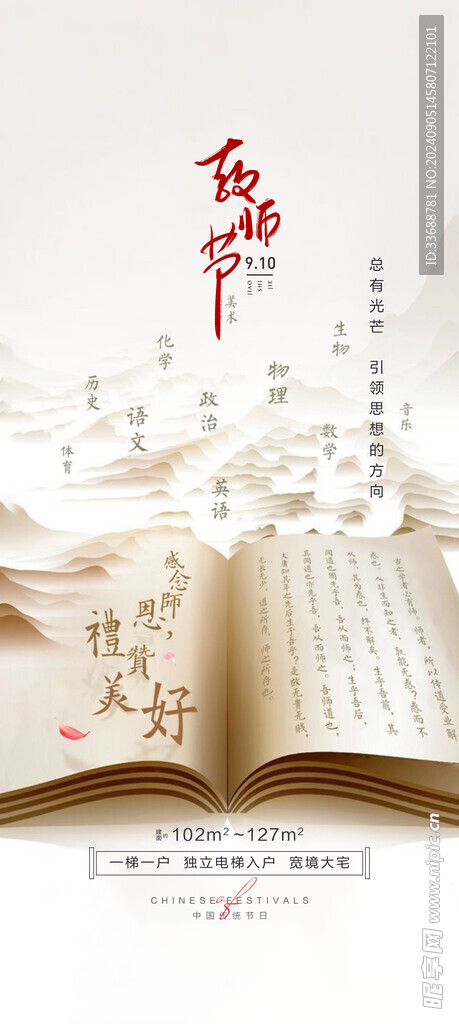 ID:33688781 NO:20240905145807122101
教师节
9.10
JIE
SHI
JIAO
总有光芒 引领思想的方向
美术
生物
化学
物理
历史
政治
音乐
语文
数学
体育
英语
感念師恩，
禮贊美好
古之学者必有师。师者，所以传道受业解
惑也。人非生而知之者，孰能无惑？惑而不
从师，其为惑也，终不解矣。生乎吾前，其
闻道也固先乎吾，吾从而师之；生乎吾后，
其闻道也亦先乎吾，吾从而师之。吾师道也，
夫庸知其年之先后生于吾乎？是故无贵无贱，
无长无少，道之所存，师之所存也。
建面约 102m²~127m²
一梯一户 独立电梯入户 宽境大宅
CHINESE of FESTIVALS
中国传统节日
昵享网 www.nipic.cn